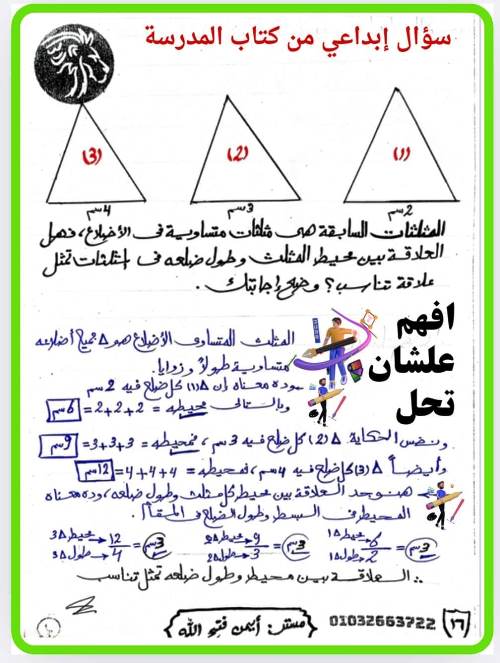 سؤال إبداعي من كتاب المدرسة
(3) (2) (1)
4سم 3سم 2سم
المثلثات السابقة هى مثلثات متساوية فى الأضلاع، فهل
العلاقة بين محيط المثلث وطول ضلعه فى المثلثات تمثل
علاقة تناسب؟ وضح إجابتك.
افهم
علشان
تحل
المثلث المتساوى الأضلاع هو △ جميع أضلاعه
متساوية طولاً وزوايا.
وده معناه إن △(1) كل ضلع فيه 2 سم
وبالتالى محيطه = 2+2+2 = 6سم
وبنفس الحكاية △(2) كل ضلع فيه 3 سم، فمحيطه = 3+3+3 = 9سم
وأيضاً △(3) كل ضلع فيه 4سم، فمحيطه = 4+4+4 = 12سم
هنوجد العلاقة بين محيط كل مثلث وطول ضلعه، وده معناه
المحيط فى البسط وطول الضلع فى المقام.
محيط △3 → 12 / طول △3 → 4 = 3سم محيط △2 → 9 / طول △2 → 3 = 3سم محيط △1 → 6 / طول △1 → 2 = 3سم
∴ العلاقة بين محيط وطول ضلعه تمثل تناسب
{مستر: أيمن فتح الله} 01032663722 (١٦)